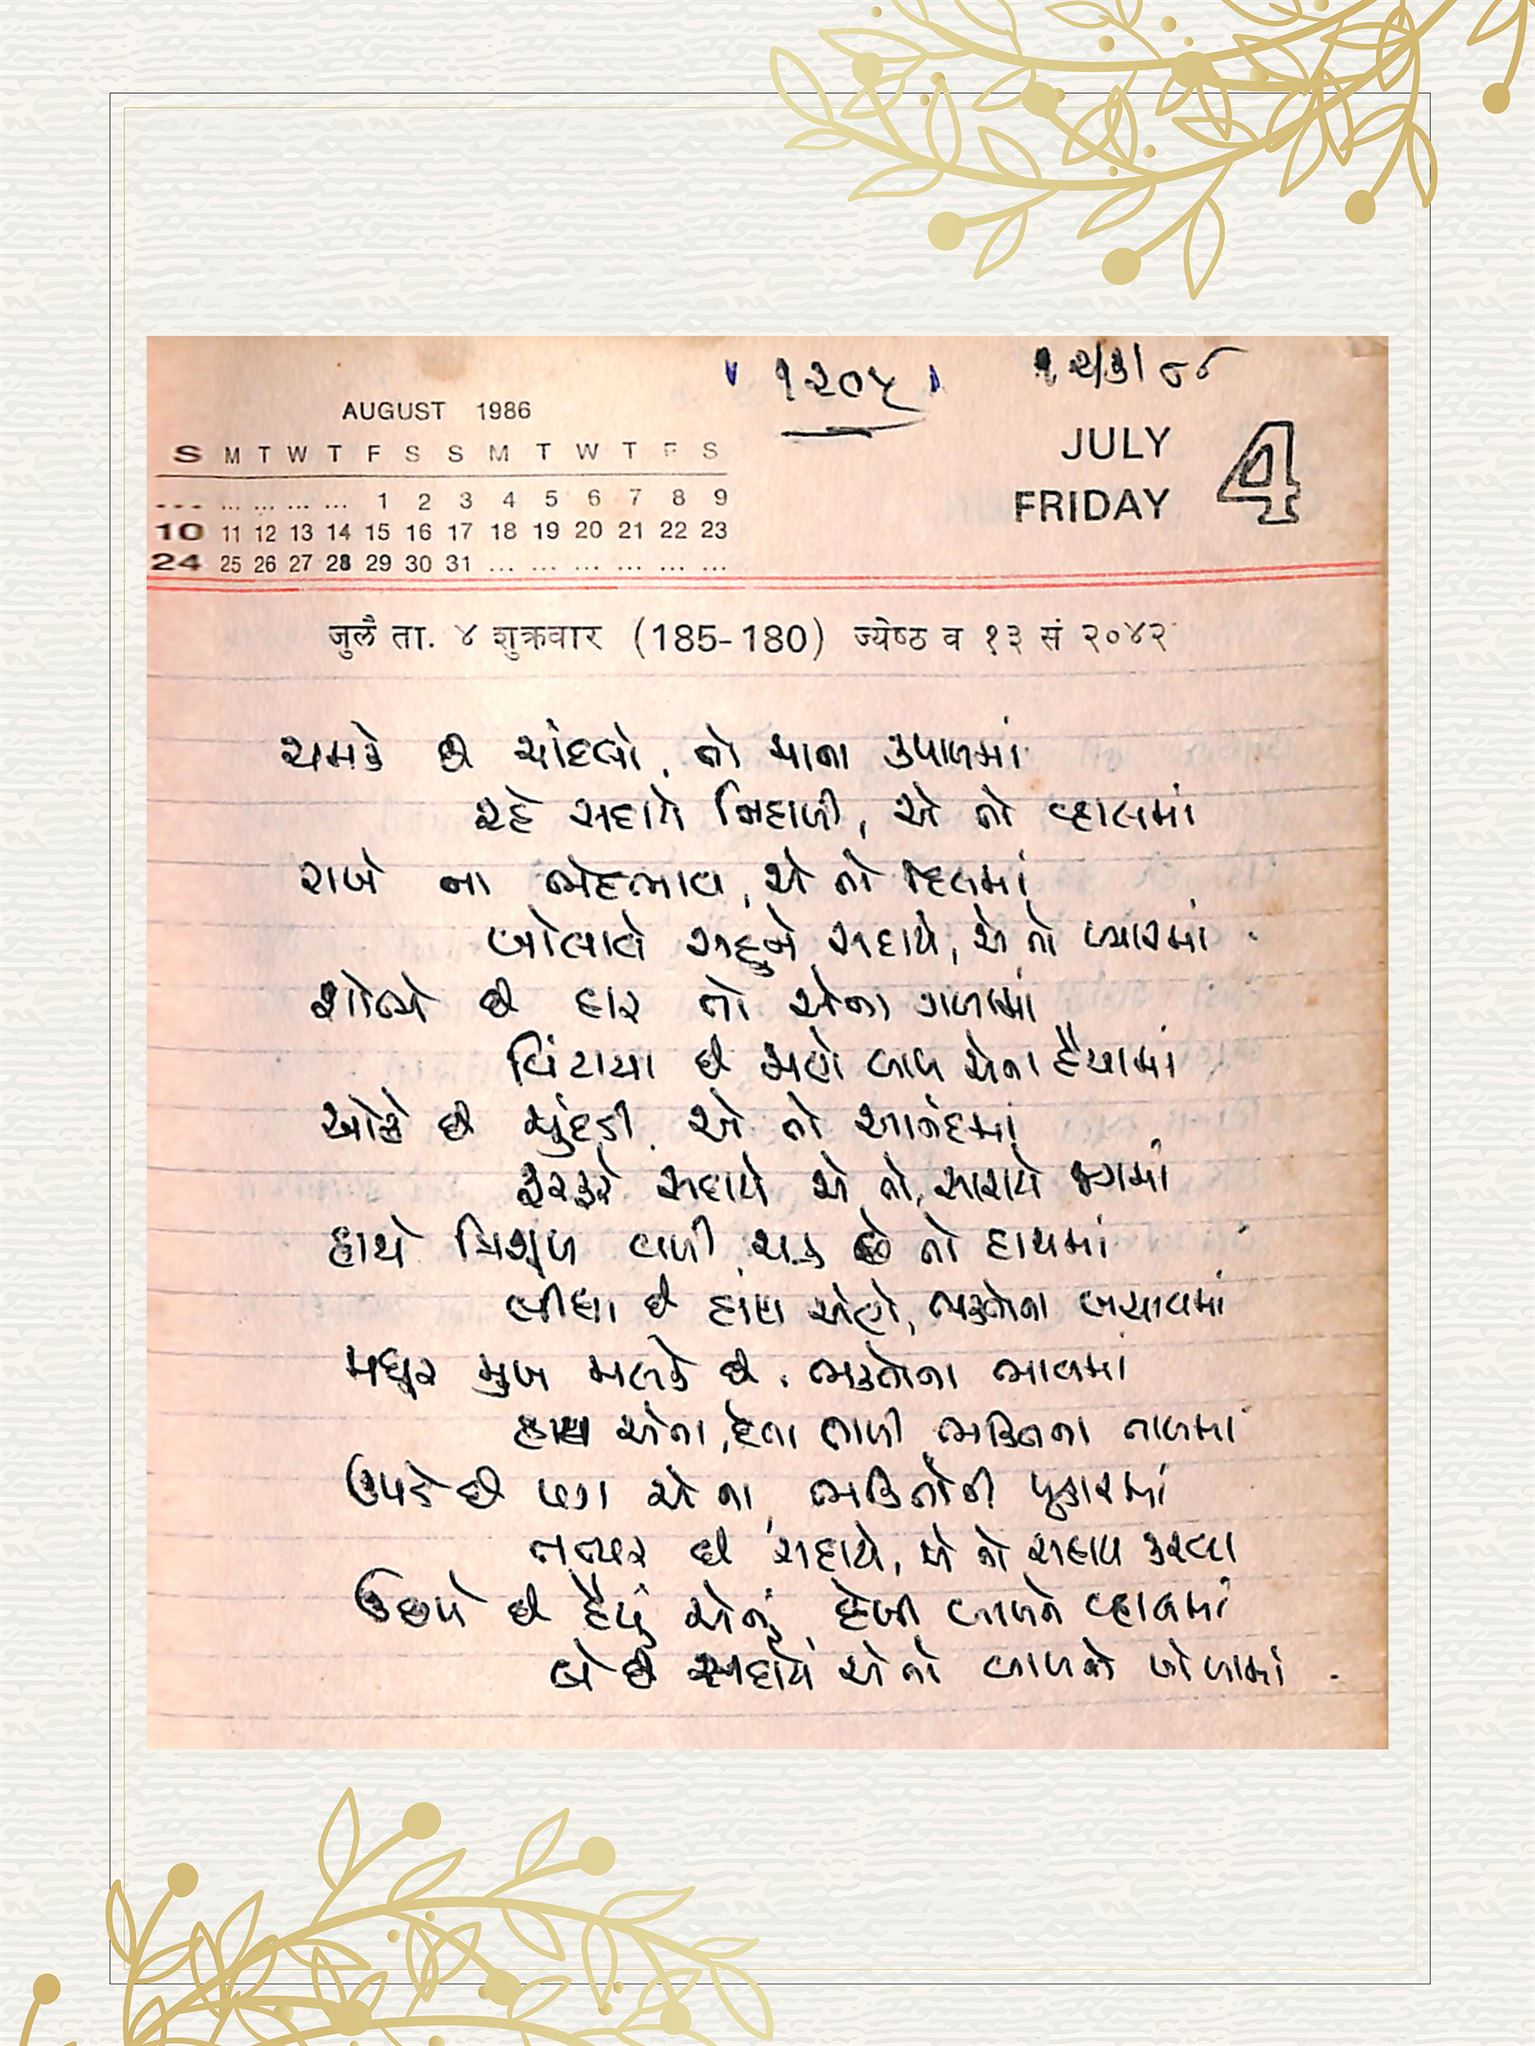 ૧૨૦૫
૧૨/૩/૮૮
AUGUST 1986
S M T W T F S S M T W T F S
... ... ... ... ... 1 2 3 4 5 6 7 8 9
10 11 12 13 14 15 16 17 18 19 20 21 22 23
24 25 26 27 28 29 30 31 ... ... ... ... ... ...
JULY
FRIDAY
4
जुलै ता. ४ शुक्रवार (185-180) ज्येष्ठ व १३ सं २०४२
ચમકે છે ચાંદલો, તો માના કપાળમાં
રહે સદાયે નિહાળી, એ તો વ્હાલમાં
રાખે ના ભેદભાવ, એ તો દિલમાં
બોલાવે સહુને સદાયે, એ તો પ્યારમાં
શોભે છે હાર તો એના ગળામાં
વિંટાયા છે જાણે બાળ એના હૈયામાં
ઓઢે છે ચુંદડી, એ તો આનંદમાં
ફરફરે સદાયે એ તો, સારાયે જગમાં
હાથે ત્રિશૂળ વળી, ચક્ર છે તો હાથમાં
લીધા છે હાથ એણે, ભક્તોના બચાવમાં
મધુર મુખ મલકે છે, ભક્તોના ભાવમાં
હાથ એના, દેતા તાળી ભક્તિના તાલમાં
ઉપડે છે પગ એના, ભક્તોની પુકારમાં
તત્પર છે સદાયે, એ તો સહાય કરવા
ઉછળે છે હૈયું એનું, દેખી બાળને વ્હાલમાં
લે છે સદાયે એ તો બાળને ખોળામાં